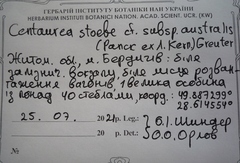 ГЕРБАРІЙ ІНСТИТУТУ БОТАНІКИ НАН УКРАЇНИ
HERBARIUM INSTITUTI BOTANICI NATION. ACAD. SCIENT. UCR. (KW)
Centaurea stoebe cf. subsp. australis
(Pancic ex A. Kern.) Greuter
Житом. обл., м. Бердичів: біля
залізнич. вокзалу, біля місця розван-
таження вагонів 1 велика особина
із понад 40 стеблами, коорд.: 49.887299°
28.614554°
25. 07. 2021 р. Leg.: О.І. Шиндер
20 р. Det.: О.О. Орлов
№